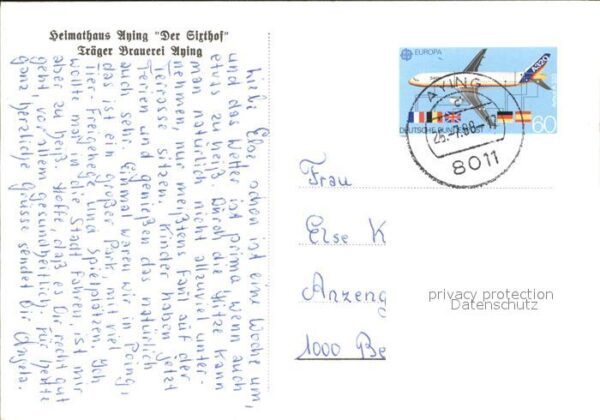 Heimathaus Aying "Der Sixthof"
Träger Brauerei Aying
Liebe Else schon ist eine Woche um,
und das Wetter ist prima wenn auch
etwas zu heiß. Durch die Hitze kann
man natürlich nicht allzuviel unter-
nehmen, nur meistens faul auf der
Terrasse sitzen. Kinder haben jetzt
Ferien und genießen das natürlich
auch sehr. Einmal waren wir in Poing,
das ist ein großer Park, mit viel
Tier-Freigehege und Spielplätzen. Ich
wollte mal in die Stadt fahren, ist mir
aber zu heiß. Hoffe, daß es Dir recht gut
geht, vor allem gesundheitlich. Für heute
ganz herzliche Grüsse sendet Dir Angela.
EUROPA
A320
DEUTSCHE BUNDESPOST
60
AYING
25.-7.88.-17
8011
Frau
Else K
Anzeng
1000 Be
privacy protection
Datenschutz